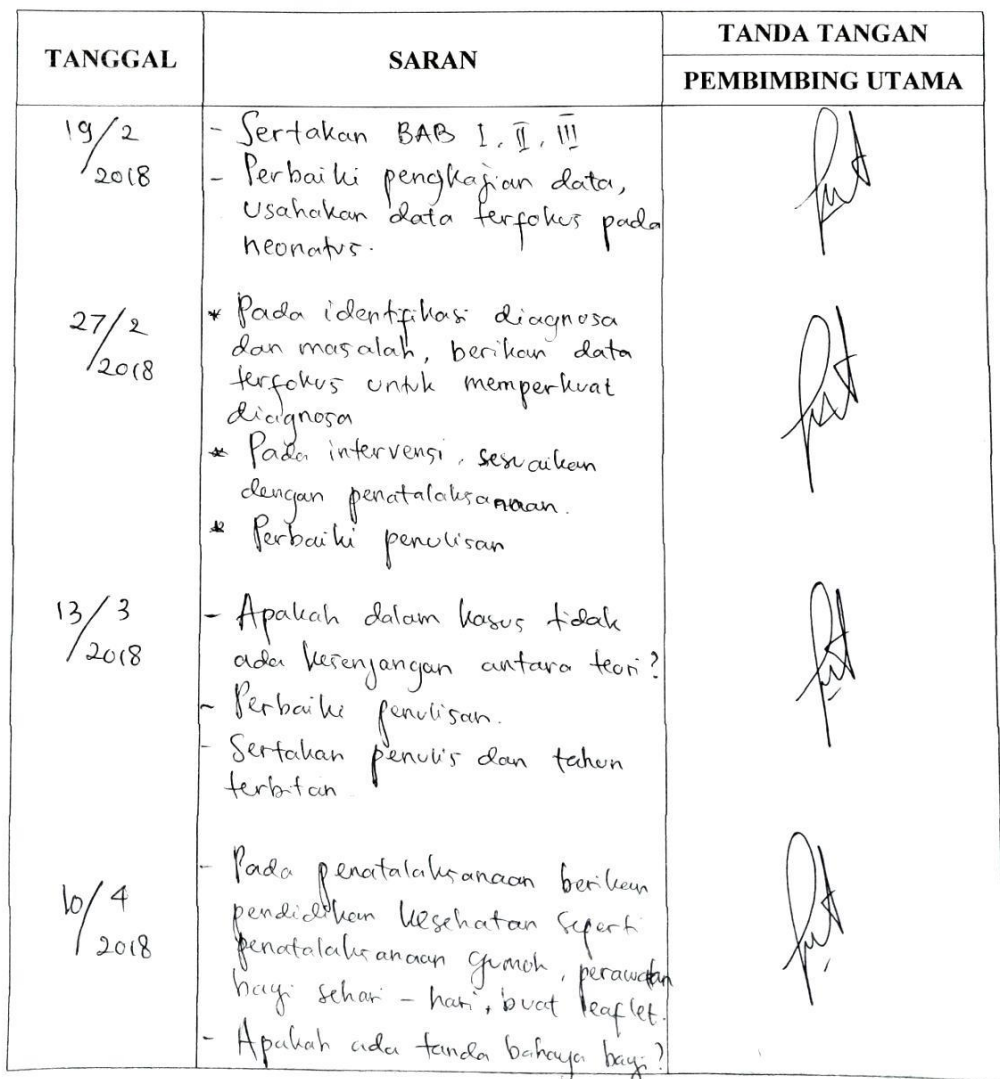 TANGGAL
SARAN
TANDA TANGAN
PEMBIMBING UTAMA
19/2
2018
- Sertakan BAB I, II, III
- Perbaiki pengkajian data,
usahakan data terfokus pada
neonatus.
27/2
2018
* Pada identifikasi diagnosa
dan masalah, berikan data
terfokus untuk memperkuat
diagnosa
* Pada intervensi, sesuaikan
dengan penatalaksanaan.
* Perbaiki penulisan
13/3
2018
- Apakah dalam kasus tidak
ada kesenjangan antara teori?
- Perbaiki penulisan.
- Sertakan penulis dan tahun
terbitan
10/4
2018
- Pada penatalaksanaan berikan
pendidikan kesehatan seperti
penatalaksanaan gumoh, perawatan
bayi sehari - hari, buat leaflet.
- Apakah ada tanda bahaya bayi?